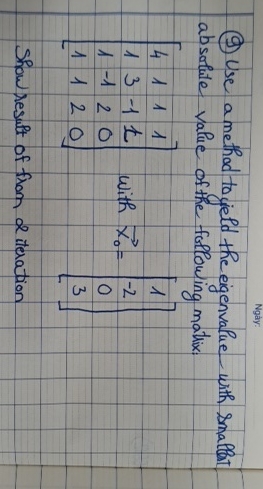 Ngày:
⑨ Use a method to yeld the eigenvalue with smallest
absolute value of the following matrix.
4 1 1 1
1 3 -1 1
1 -1 2 0
1 1 2 0
with x₀ =
1
-2
0
3
Show result of from 2 iteration